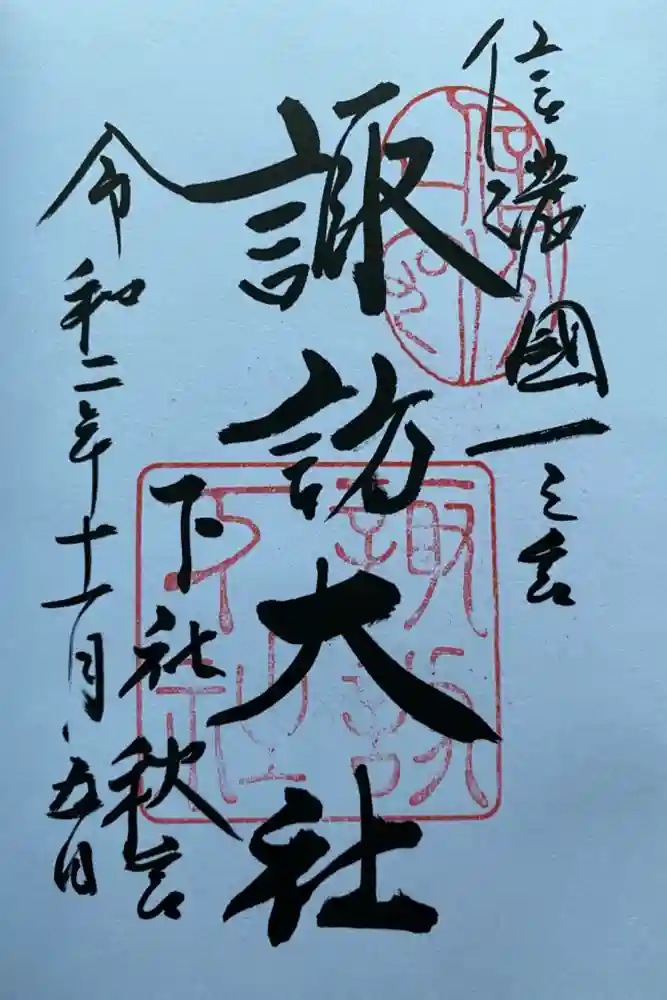 信濃國一之宮
諏訪大社
下社秋宮
令和二年十一月五日
諏訪
下社